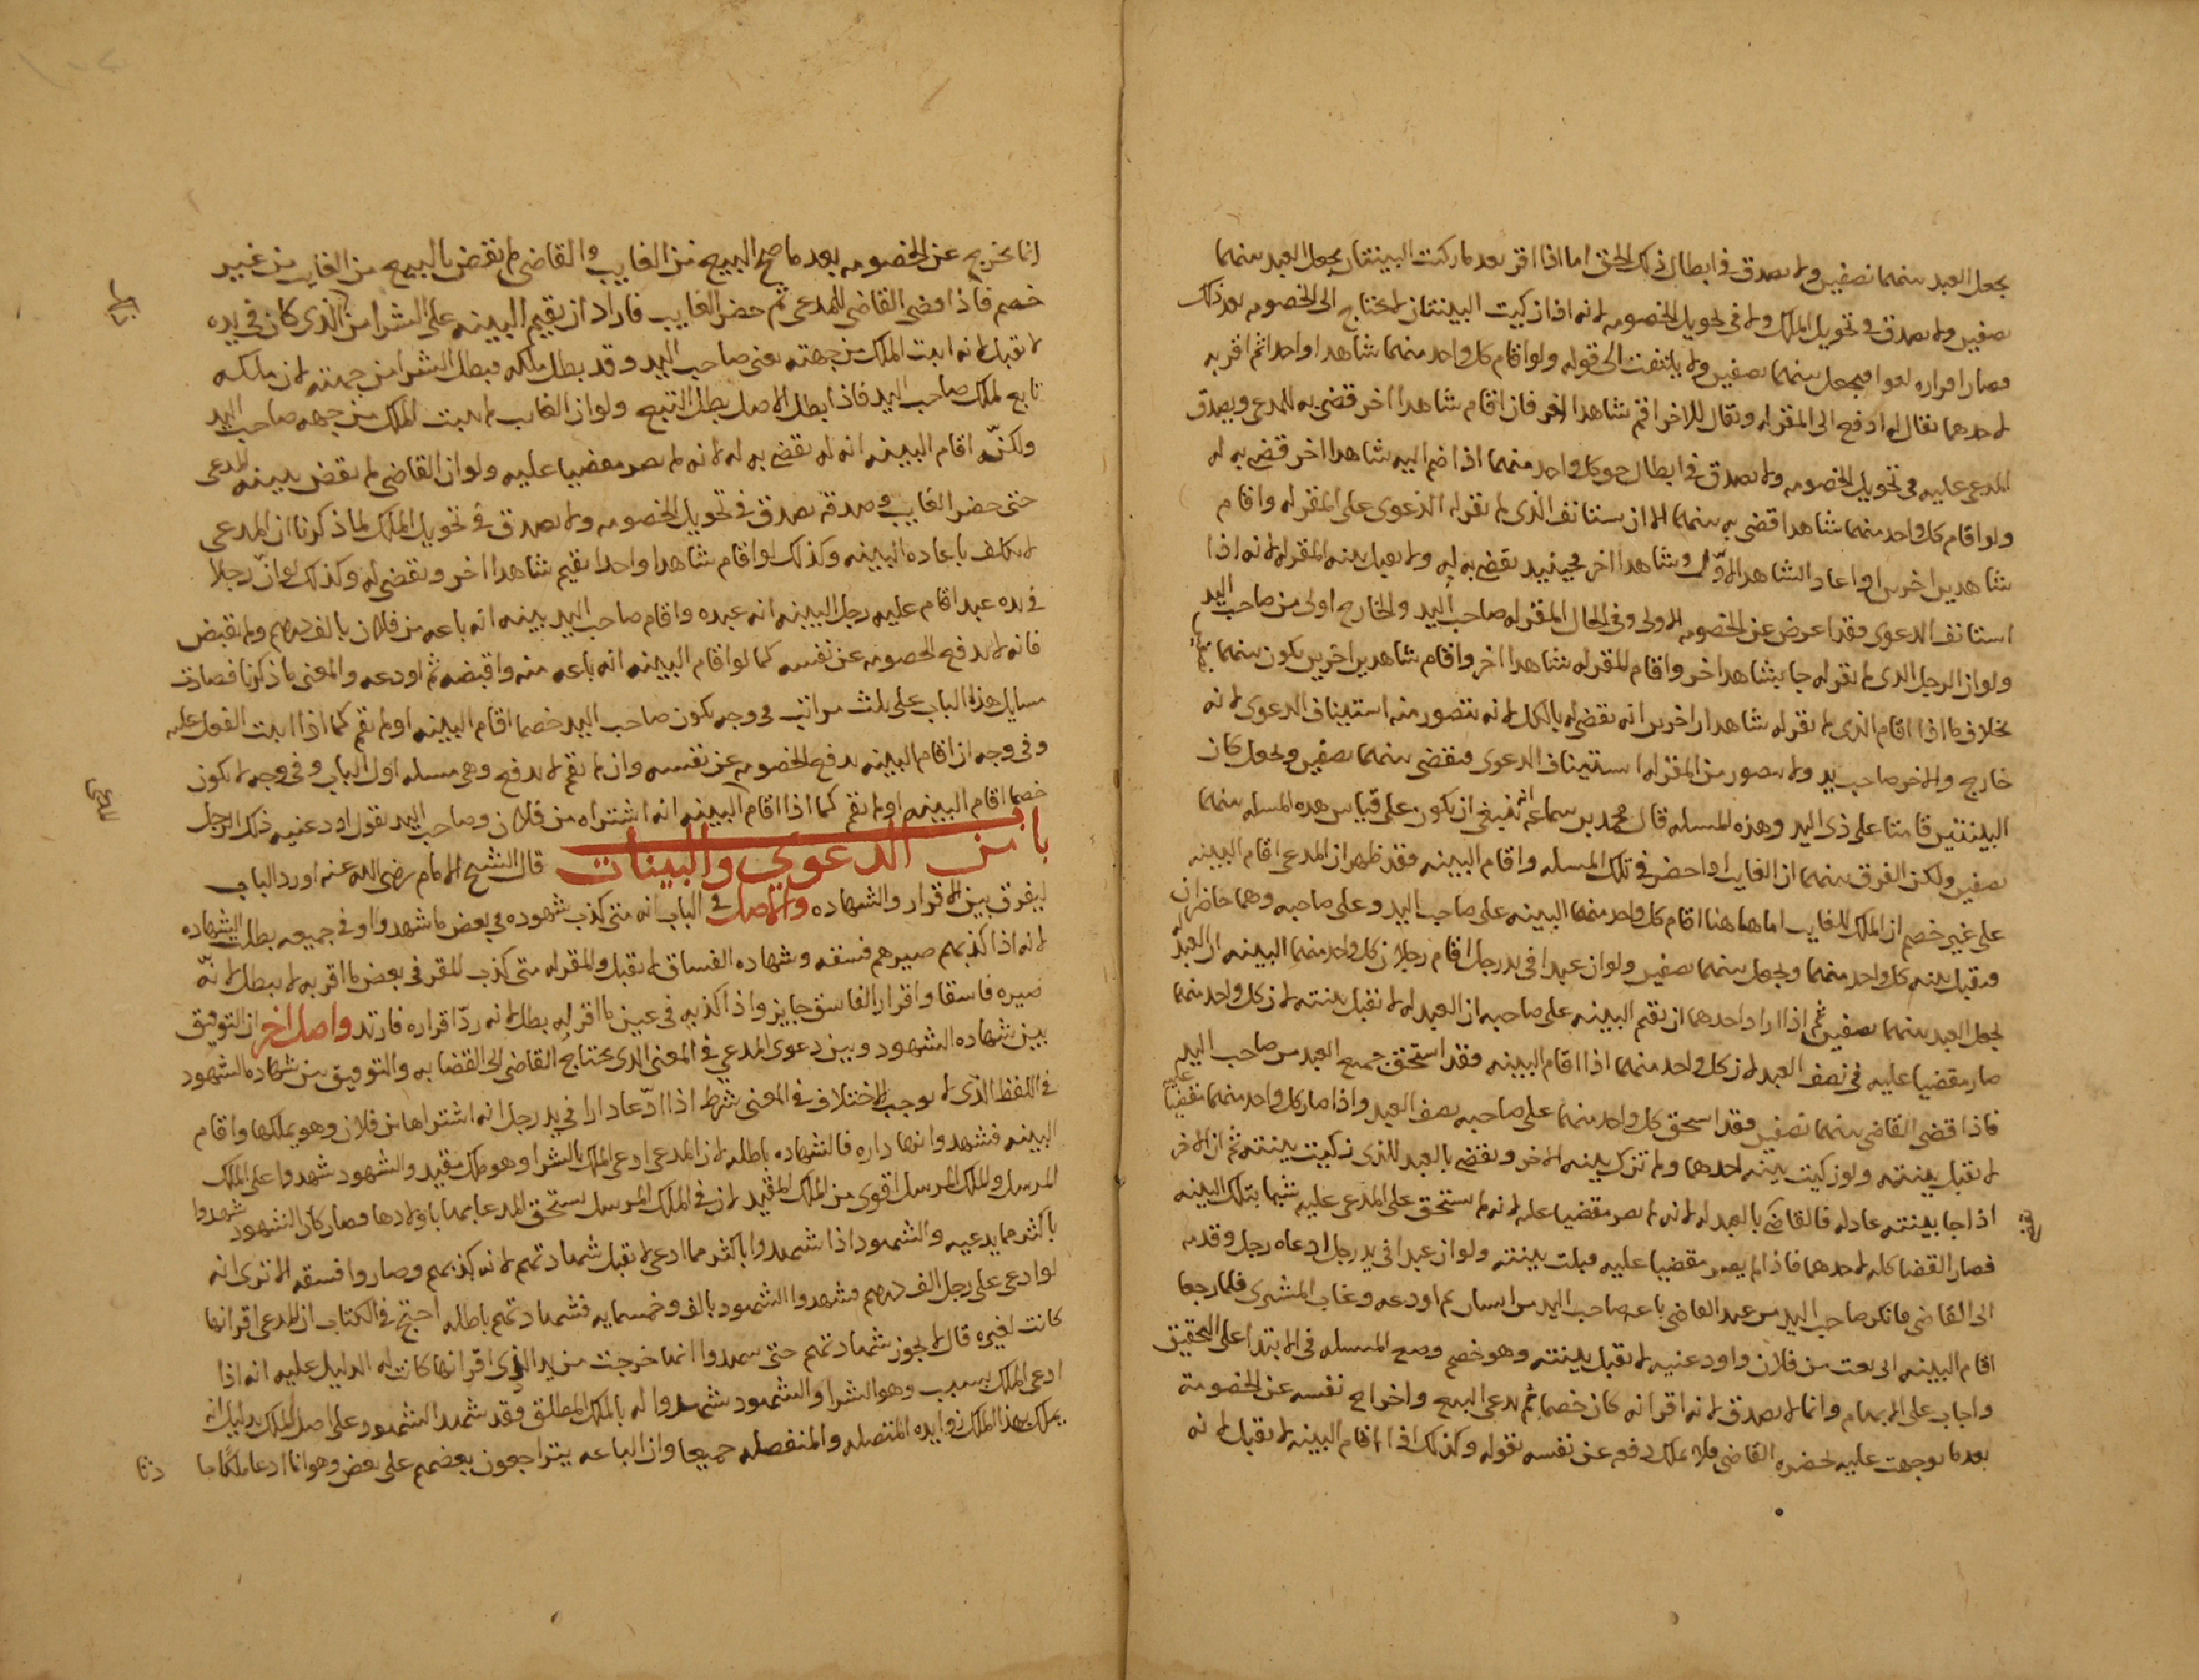 يجعل العبد بينهما نصفين ولا يصدق في ابطال ذلك الحق اما اذا اقر بعد ما زكيت البينتان يجعل العبد بينهما
نصفين ولا يصدق في تحويل الملك ولا في تحويل الخصومه لانه اذا زكيت البينتان لا يحتاج الى الخصومه بعد ذلك
فصار اقراره لغوا فيجعل بينهما نصفين ولا يلتفت الى قوله ولو اقام كل واحد منهما شاهدا واحدا ثم اقر به
لاحدهما يقال له ادفع الى المقر له ويقال للاخر اقم شاهدا اخر فان اقام شاهدا اخر قضى به للمدعي ويصدق
المدعى عليه في تحويل الخصومه ولا يصدق في ابطال حق كل واحد منهما اذا ضم اليه شاهدا اخر قضى به له
ولو اقام كل واحد منهما شاهدا قضى به بينهما الا ان يستانف الذي لم يقر له الدعوى على المقر له واقام
شاهدين اخرين او اعاد الشاهد الاول وشاهدا اخر فحينيذ يقضى به له ولا يقبل بينه المقر له لانه اذا
استانف الدعوى فقد اعرض عن الخصومه الاولى وفي الحال المقر له صاحب اليد والخارج اولى من صاحب اليد
ولو ان الرجل الذي لم يقر له جا بشاهد اخر واقام المقر له شاهدا اخر واقام شاهدين اخرين يكون بينهما
بخلاف ما اذا اقام الذي لم يقر له شاهدان اخرين انه يقضى له بالكل لانه يتصور منه استيناف الدعوى لانه
خارج والاخر صاحب يد ولا يتصور من المقر له استيناف الدعوى فيقضى بينهما نصفين ويجعل كان
البينتين قامتا على ذي اليد وهذه المسله قال محمد بن سماعه انه ينبغي ان يكون على قياس هذه المسله بينهما
نصفين ولكن الفرق بينهما ان الغايب اذا حضر في تلك المسله واقام البينه فقد ظهر ان المدعي اقام البينه
على غير خصم ان الملك للغايب اما هاهنا اقام كل واحد منهما البينه على صاحب اليد وعلى صاحبه وهما حاضران
فيقبل بينه كل واحد منهما ويجعل بينهما نصفين ولو ان عبدا في يد رجل اقام رجلان كل واحد منهما البينه ان العبد له
يجعل العبد بينهما نصفين ثم اذا اراد احدهما ان يقيم البينه على صاحبه ان العبد له لا تقبل بينته لان كل واحد منهما
صار مقضيا عليه في نصف العبد لان كل واحد منهما اذا اقام البينه فقد استحق جميع العبد من صاحب اليد
فاذا قضى القاضي بينهما نصفين فقد استحق كل واحد منهما على صاحبه نصف العبد واذا صار كل واحد منهما مقضيا عليه
لا تقبل بينته ولو زكيت بينه احدهما ولم تزك بينه الاخر ويقضى بالعبد للذي زكيت بينته ثم ان الاخر
اذا جا ببينته عادله فالقاضي بالعبد له لانه لم يصر مقضيا عليه لانه لم يستحق على المدعى عليه شيا بتلك البينه
فصار القضا كله لاحدهما فاذا لم يصر مقضيا عليه قبلت بينته ولو ان عبدا في يد رجل ادعاه رجل وقدمه
الى القاضي فانكر صاحب اليد من عبد القاضي باعه صاحب اليد من انسان ثم اودعه وغاب المشتري فلما رجعا
اقام البينه اني بعت من فلان واودعنيه لا تقبل بينته وهو خصم وضع المسله في الابتدا على التحقيق
واجاب على الابهام وانما لا يصدق لانه اقر انه كان خصما ثم يدعي البيع واخراج نفسه عن الخصومة
بعد ما توجهت عليه بحضره القاضي فلا يملك دفعه عن نفسه بقوله وكذلك اذا اقام البينه لا تقبل لانه
انما يخرج عن الخصومه بعد ما صح البيع من الغايب والقاضي لم يقض بالبيع من الغايب من غير
خصم فاذا قضى القاضي للمدعي ثم حضر الغايب فاراد ان يقيم البينه على الشرا من الذي كان في يده
لا تقبل لانه اثبت الملك من جهته يعني صاحب اليد وقد بطل ملكه فبطل الشرا من جهته لان ملكه
تابع لملك صاحب اليد فاذا بطل الاصل بطل التبع ولو ان الغايب لم يثبت الملك من جهه صاحب اليد
ولكنه اقام البينه انه له يقضى به له لانه لم يصر مقضيا عليه ولو ان القاضي لم يقض ببينه المدعي
حتى حضر الغايب وصدقه يصدق في تحويل الخصومه ولا يصدق في تحويل الملك لما ذكرنا ان المدعي
لا يكلف باعاده البينه وكذلك لو اقام شاهدا واحدا يقيم شاهدا اخر ويقضى له وكذلك لو ان رجلا
في يده عبد اقام عليه رجل البينه انه عبده واقام صاحب اليد بينه انه باعه من فلان بالف درهم ولم يقبض
فانه لا يدفع الخصومه عن نفسه كما لو اقام البينه انه باعه منه واقبضه ثم اودعه والمعنى ما ذكرنا فصارت
مسايل هذا الباب على ثلث مراتب في وجه يكون صاحب اليد خصما اقام البينه او لم يقم كما اذا اثبت القول عليه
وفي وجه ان اقام البينه يدفع الخصومه عن نفسه وان لم يقم لا يدفع وهي مسله اول الباب وفي وجه لا يكون
خصما اقام البينه او لم يقم كما اذا اقام البينه انه اشتراه من فلان وصاحب اليد يقول اودعنيه ذلك الرجل
باب من الدعوى والبينات قال الشيخ الامام رضي الله عنه اورد الباب
ليفرق بين الاقرار والشهاده والاصل في الباب انه متى كذب شهوده في بعض ما شهدوا او في جميعه بطلت الشهاده
لانه اذا كذبهم صيرهم فسقه وشهاده الفساق لا تقبل والمقر له متى كذب المقر في بعض ما اقر به لا يبطل لانه
صيره فاسقا واقرار الفاسق جايز واذا كذبه في عين ما اقر له بطل لانه رد اقراره فارتد واصل اخر ان التوفيق
بين شهاده الشهود وبين دعوى المدعي في المعنى الذي يحتاج القاضي الى القضا به والتوفيق بين شهاده الشهود
في اللفظ الذي لا يوجب الاختلاف في المعنى شرط اذا ادعا دارا في يد رجل انه اشتراها من فلان وهو يملكها واقام
البينه فشهدوا انها داره فالشهاده باطله لان المدعي ادعى الملك بالشرا وهو ملك مقيد والشهود شهدوا على الملك
المرسل والملك المرسل اقوى من الملك المقيد لان في الملك المرسل يستحق المدعا بها باولادها فصار كان الشهود شهدوا
باكثر مما يدعيه والشهود اذا شهدوا باكثر مما ادعى لا تقبل شهادتهم لانه يكذبهم وصاروا فسقه الا ترى انه
لو ادعى على رجل الف درهم فشهدوا الشهود بالف وخمسمايه فشهادتهم باطله احتج في الكتاب ان المدعي اقر انها
كانت لغيره قال لا يجوز شهادتهم حتى يشهدوا انها خرجت من يد الذي اقر انها كانت له الدليل عليه انه اذا
ادعى الملك بسبب وهو الشرا والشهود شهدوا له بالملك المطلق فقد شهد الشهود على اصل الملك بدليل انه
يملك بهذا الملك زوايده المتصله والمنفصله جميعا وان الباعه يتراجعون بعضهم على بعض وهو انما ادعا ملكا حا
دثا